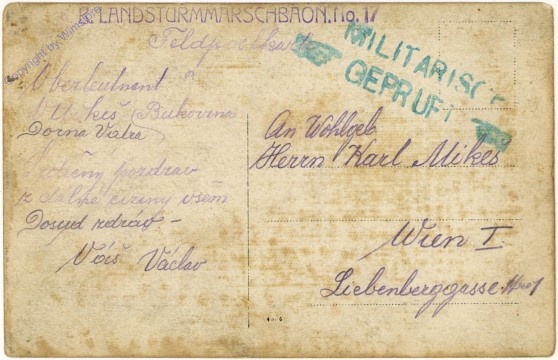 K. LANDSTURMMARSCHBAON. No. 17
Feldpostkarte
MILITÄRISCH
GEPRÜFT
Copyright by
Oberleutnent
Mikeš Bukovina
Dorna Vatra
Srdečný pozdrav
z dálné ciziny všem
Dosud zdráv –
Váš Václav
An Wohlgeb
Herrn Karl Mikes
Wien I.
Liebenberggasse